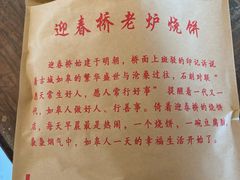 迎春桥老炉烧饼
迎春桥始建于明朝，桥面上斑驳的印记诉说
着古城如皋的繁华盛世与沧桑过往，石刻对联“
愿天常生好人，愿人常行好事”提醒着一代又一
代，如皋人做好人、行善事。倚着迎春桥的烧饼
店，每天早晨最是热闹，一个烧饼，一碗豆腐脑
烟气中，如皋人一天的幸福生活开始了。